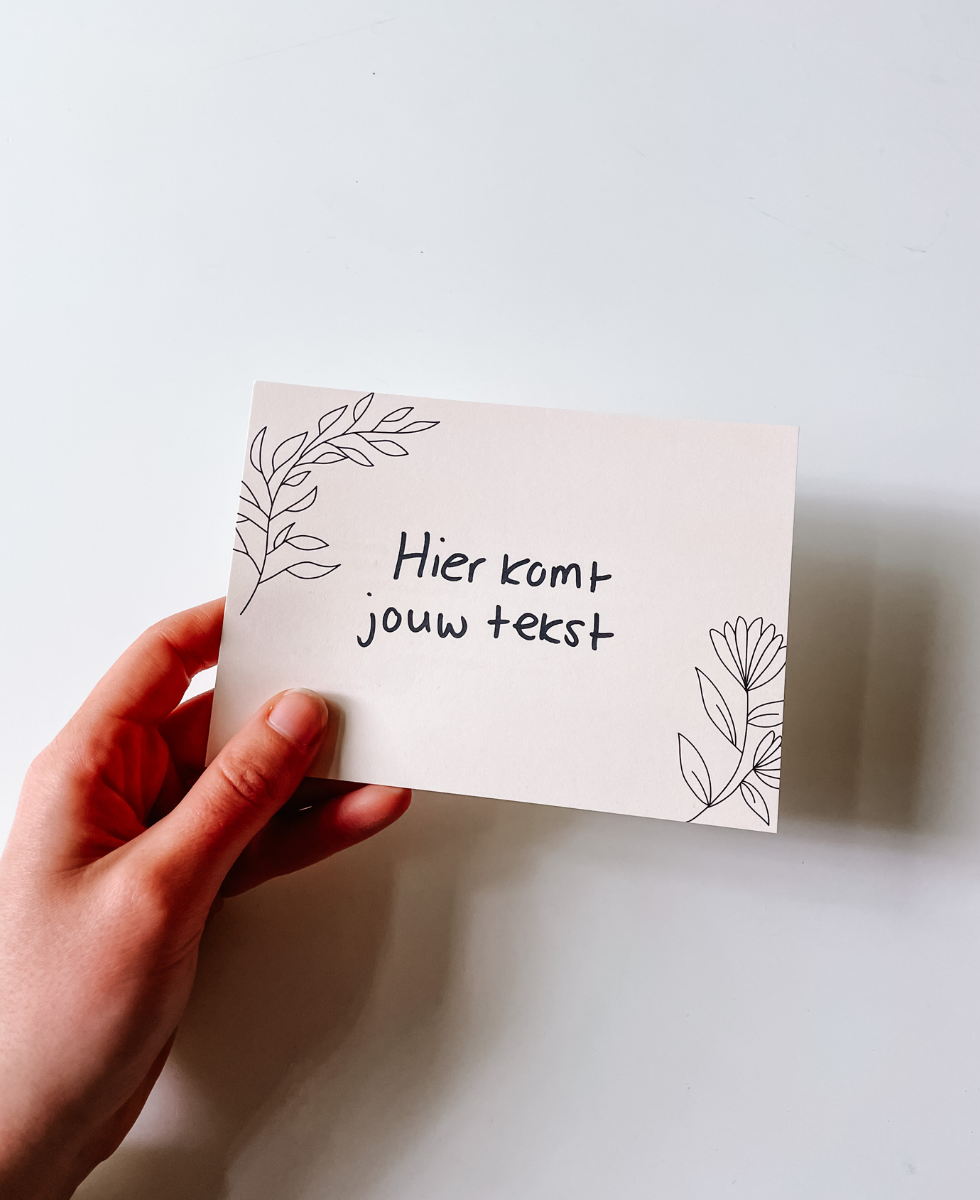 Hier komt
jouw tekst